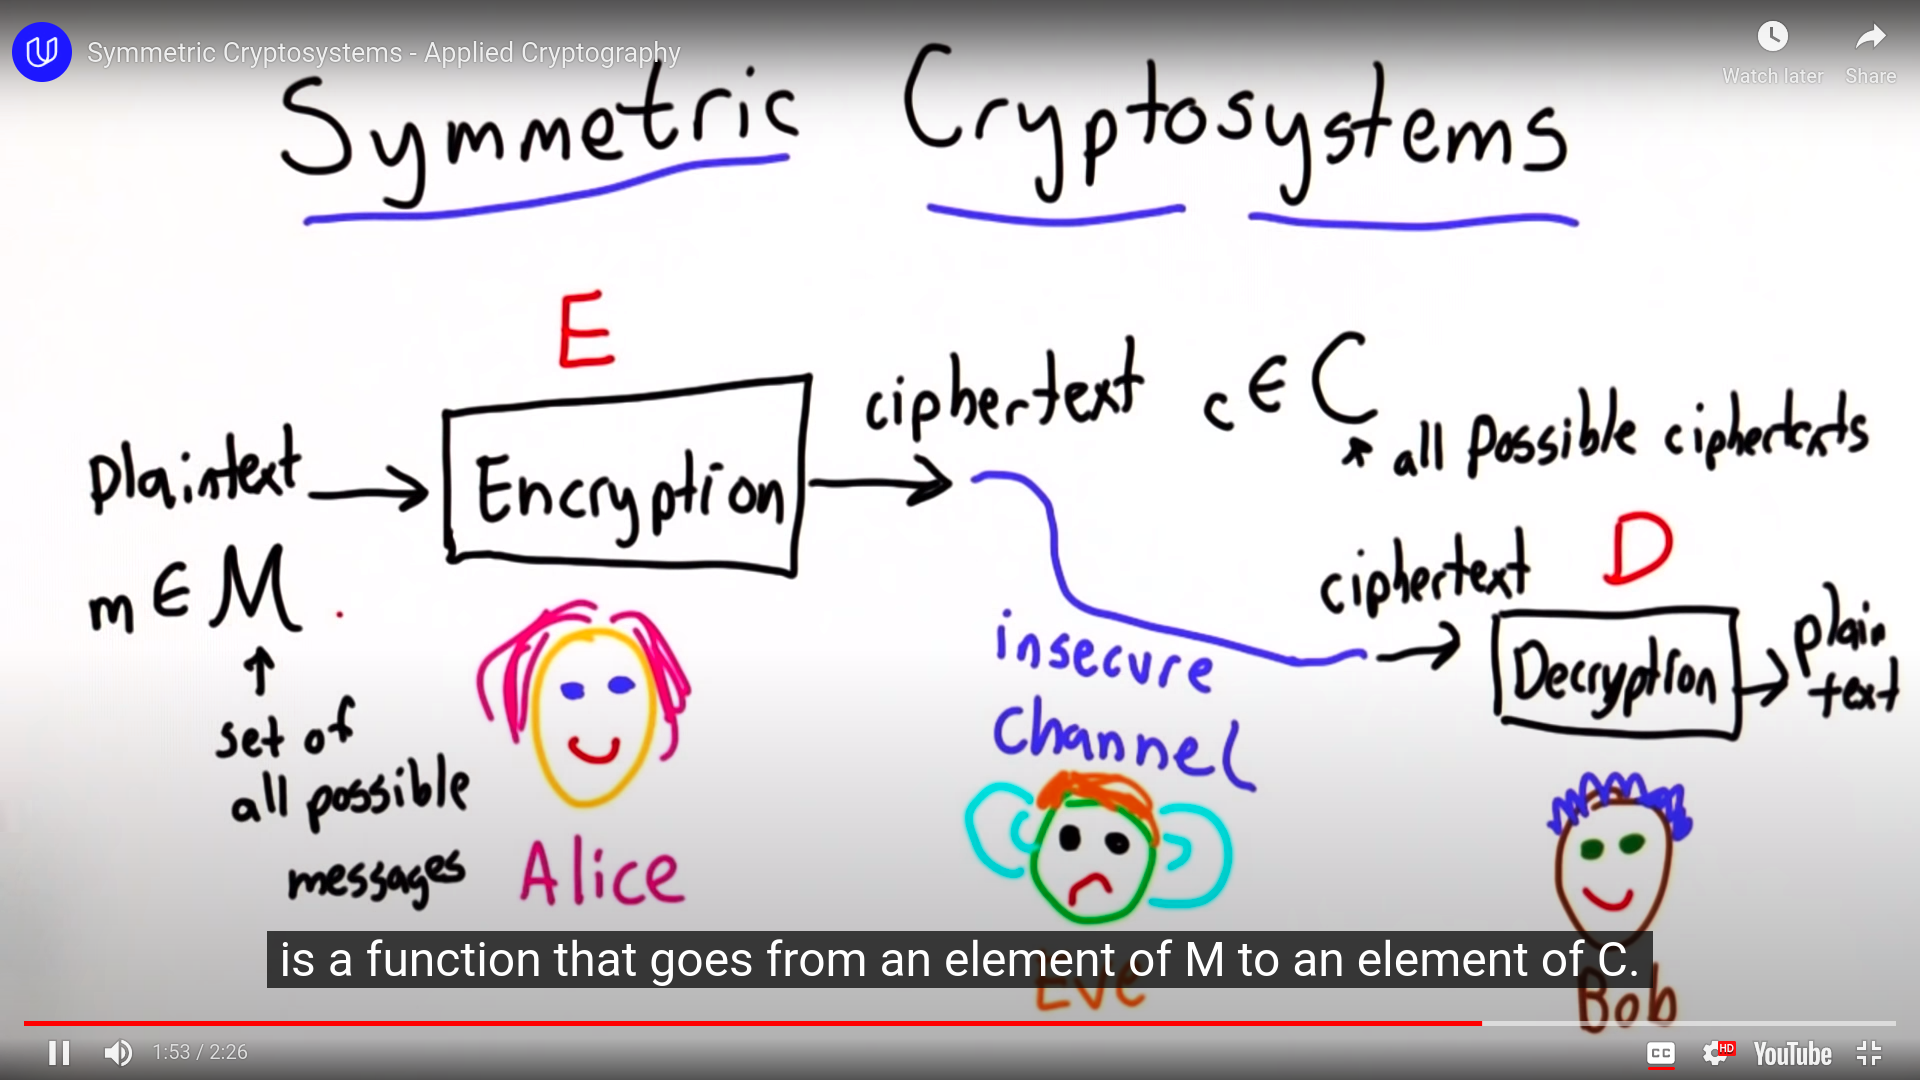 Symmetric Cryptosystems - Applied Cryptography
Watch later
Share
Symmetric Cryptosystems
E
ciphertext c ∈ C
all possible ciphertexts
plaintext
Encryption
m ∈ M
set of
all possible
messages
Alice
insecure
channel
ciphertext
D
Decryption
plain
text
is a function that goes from an element of M to an element of C.
Eve
Bob
1:53 / 2:26
CC
HD
YouTube